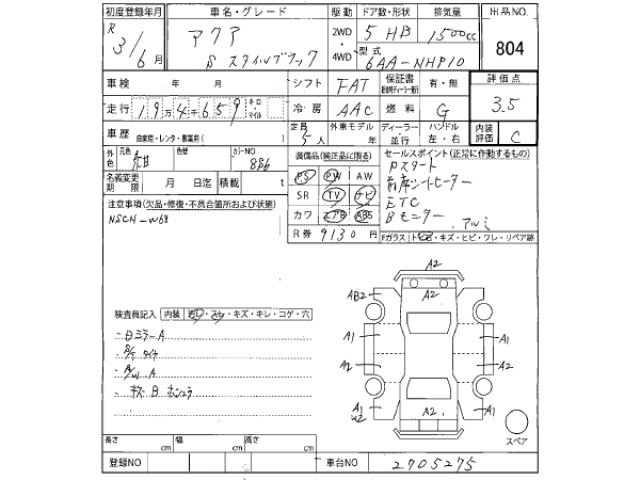 初度登録年月 車名・グレード 駆動 ドア数・形状 排気量 出品NO.
R3/6月 アクア 2WD・4WD 5 HB 1500cc 804
S スタイルブラック 型式 6AA-NHP10
車検 年 月 シフト FAT 保証書 有・無 評価点
走行 19万4千659 キロ・マイル 冷房 AAC 燃料 G 3.5
車歴 自家用・レンタ・事業用( ) 定員 5人 外車モデル 年 ディーラー・並行 ハンドル 左・右 内装評価 C
外色 元色 紺 色替 カラーNO 8P6 装備品(純正品に限る) セールスポイント(正常に作動するもの)
名義変更期限 月 日迄 積載 t PS PW AW Pスタート
注意事項(欠品・修復・不具合箇所および状態) SR TV ナビ 前席シートヒーター
NSCN-W68 カワ エアB ABS ETC
R券 9130円 Bモニター アルミ
Fガラス トビ石・キズ・ヒビ・ワレ・リペア跡
A2
AB2 A2
検査員記入 内装 ・キズ・キレ・コゲ・穴
・日ミラーA A1 A1
タイヤ A2 A2
・A/W A
A1 W2 A2 A1
スペア
長さ cm 幅 cm 高さ cm
登録NO 車台NO 2705275